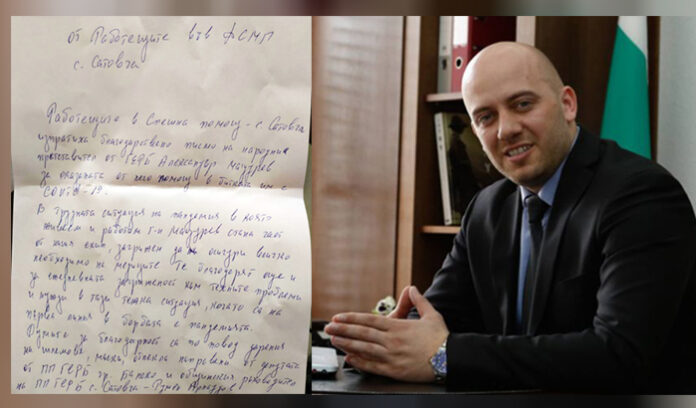 от Работещите във ФСМП
с. Сатовча
Работещите в Спешна помощ - с. Сатовча
изпратиха благодарствено писмо на народния
представител от ГЕРБ Александър Мацурев
за оказаната от него помощ в битката им с
COVID-19.
В трудната ситуация на пандемия в която
живеем и работим г-н Мацурев стана част
от екип, загрижен да осигури всичко
необходимо на медиците. Те благодарят още и
за ежедневната загриженост към техните проблеми
и нужди в тази тежка ситуация, когато са на
първа линия в борбата с пандемията.
Думите за благодарност са по повод дарения
на шлемове, маски, облекла направени от депутата
от ПП ГЕРБ гр. Банско и общинския ръководител
на ПП ГЕРБ с. Сатовча -